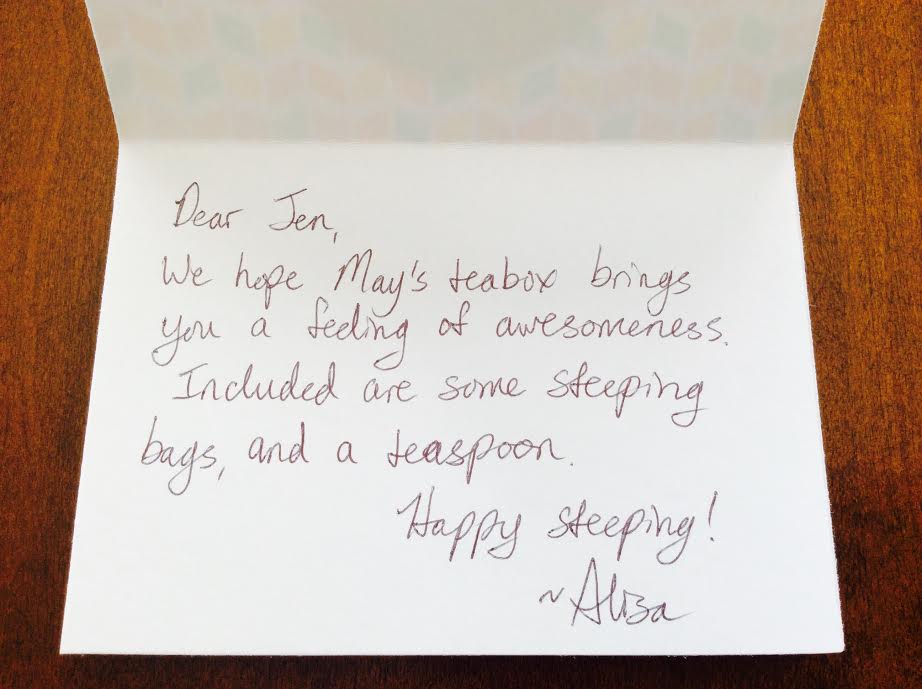 Dear Jen,
We hope May's teabox brings
you a feeling of awesomeness.
Included are some steeping
bags, and a teaspoon.
Happy steeping!
~Aliza